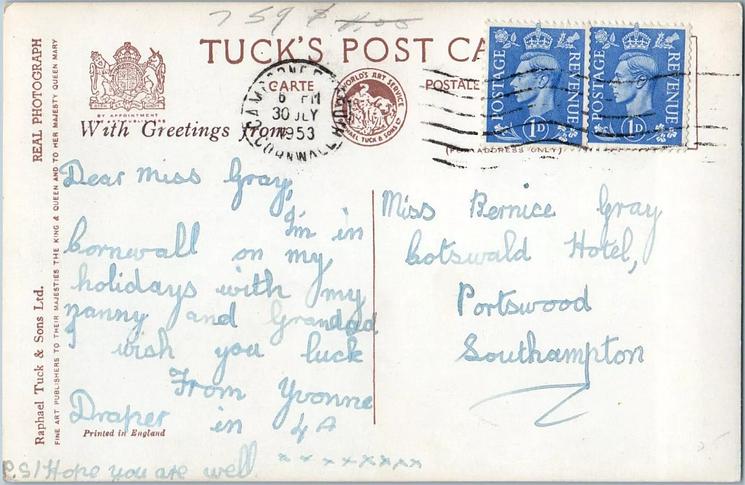 7 59 $ 4.00
TUCK'S POST CA
CARTE
POSTALE
BY APPOINTMENT
With Greetings from
WORLD'S ART SERVICE
RAPHAEL TUCK & SONS LD
CAMBORNE REDRUTH
6 PM
30 JLY
1953
CORNWALL
POSTAGE REVENUE
1D
POSTAGE REVENUE
1D
(FOR ADDRESS ONLY)
REAL PHOTOGRAPH
Raphael Tuck & Sons Ltd.
FINE ART PUBLISHERS TO THEIR MAJESTIES THE KING & QUEEN AND TO HER MAJESTY QUEEN MARY
Dear Miss Gray,
I'm in
Cornwall on my
holidays with my
nanny and Grandad
I wish you luck
From Yvonne
Draper in 4A
Printed in England
P.S/ Hope you are well. xxxxxxxx
Miss Bernice Gray
Cotswald Hotel,
Portswood
Southampton